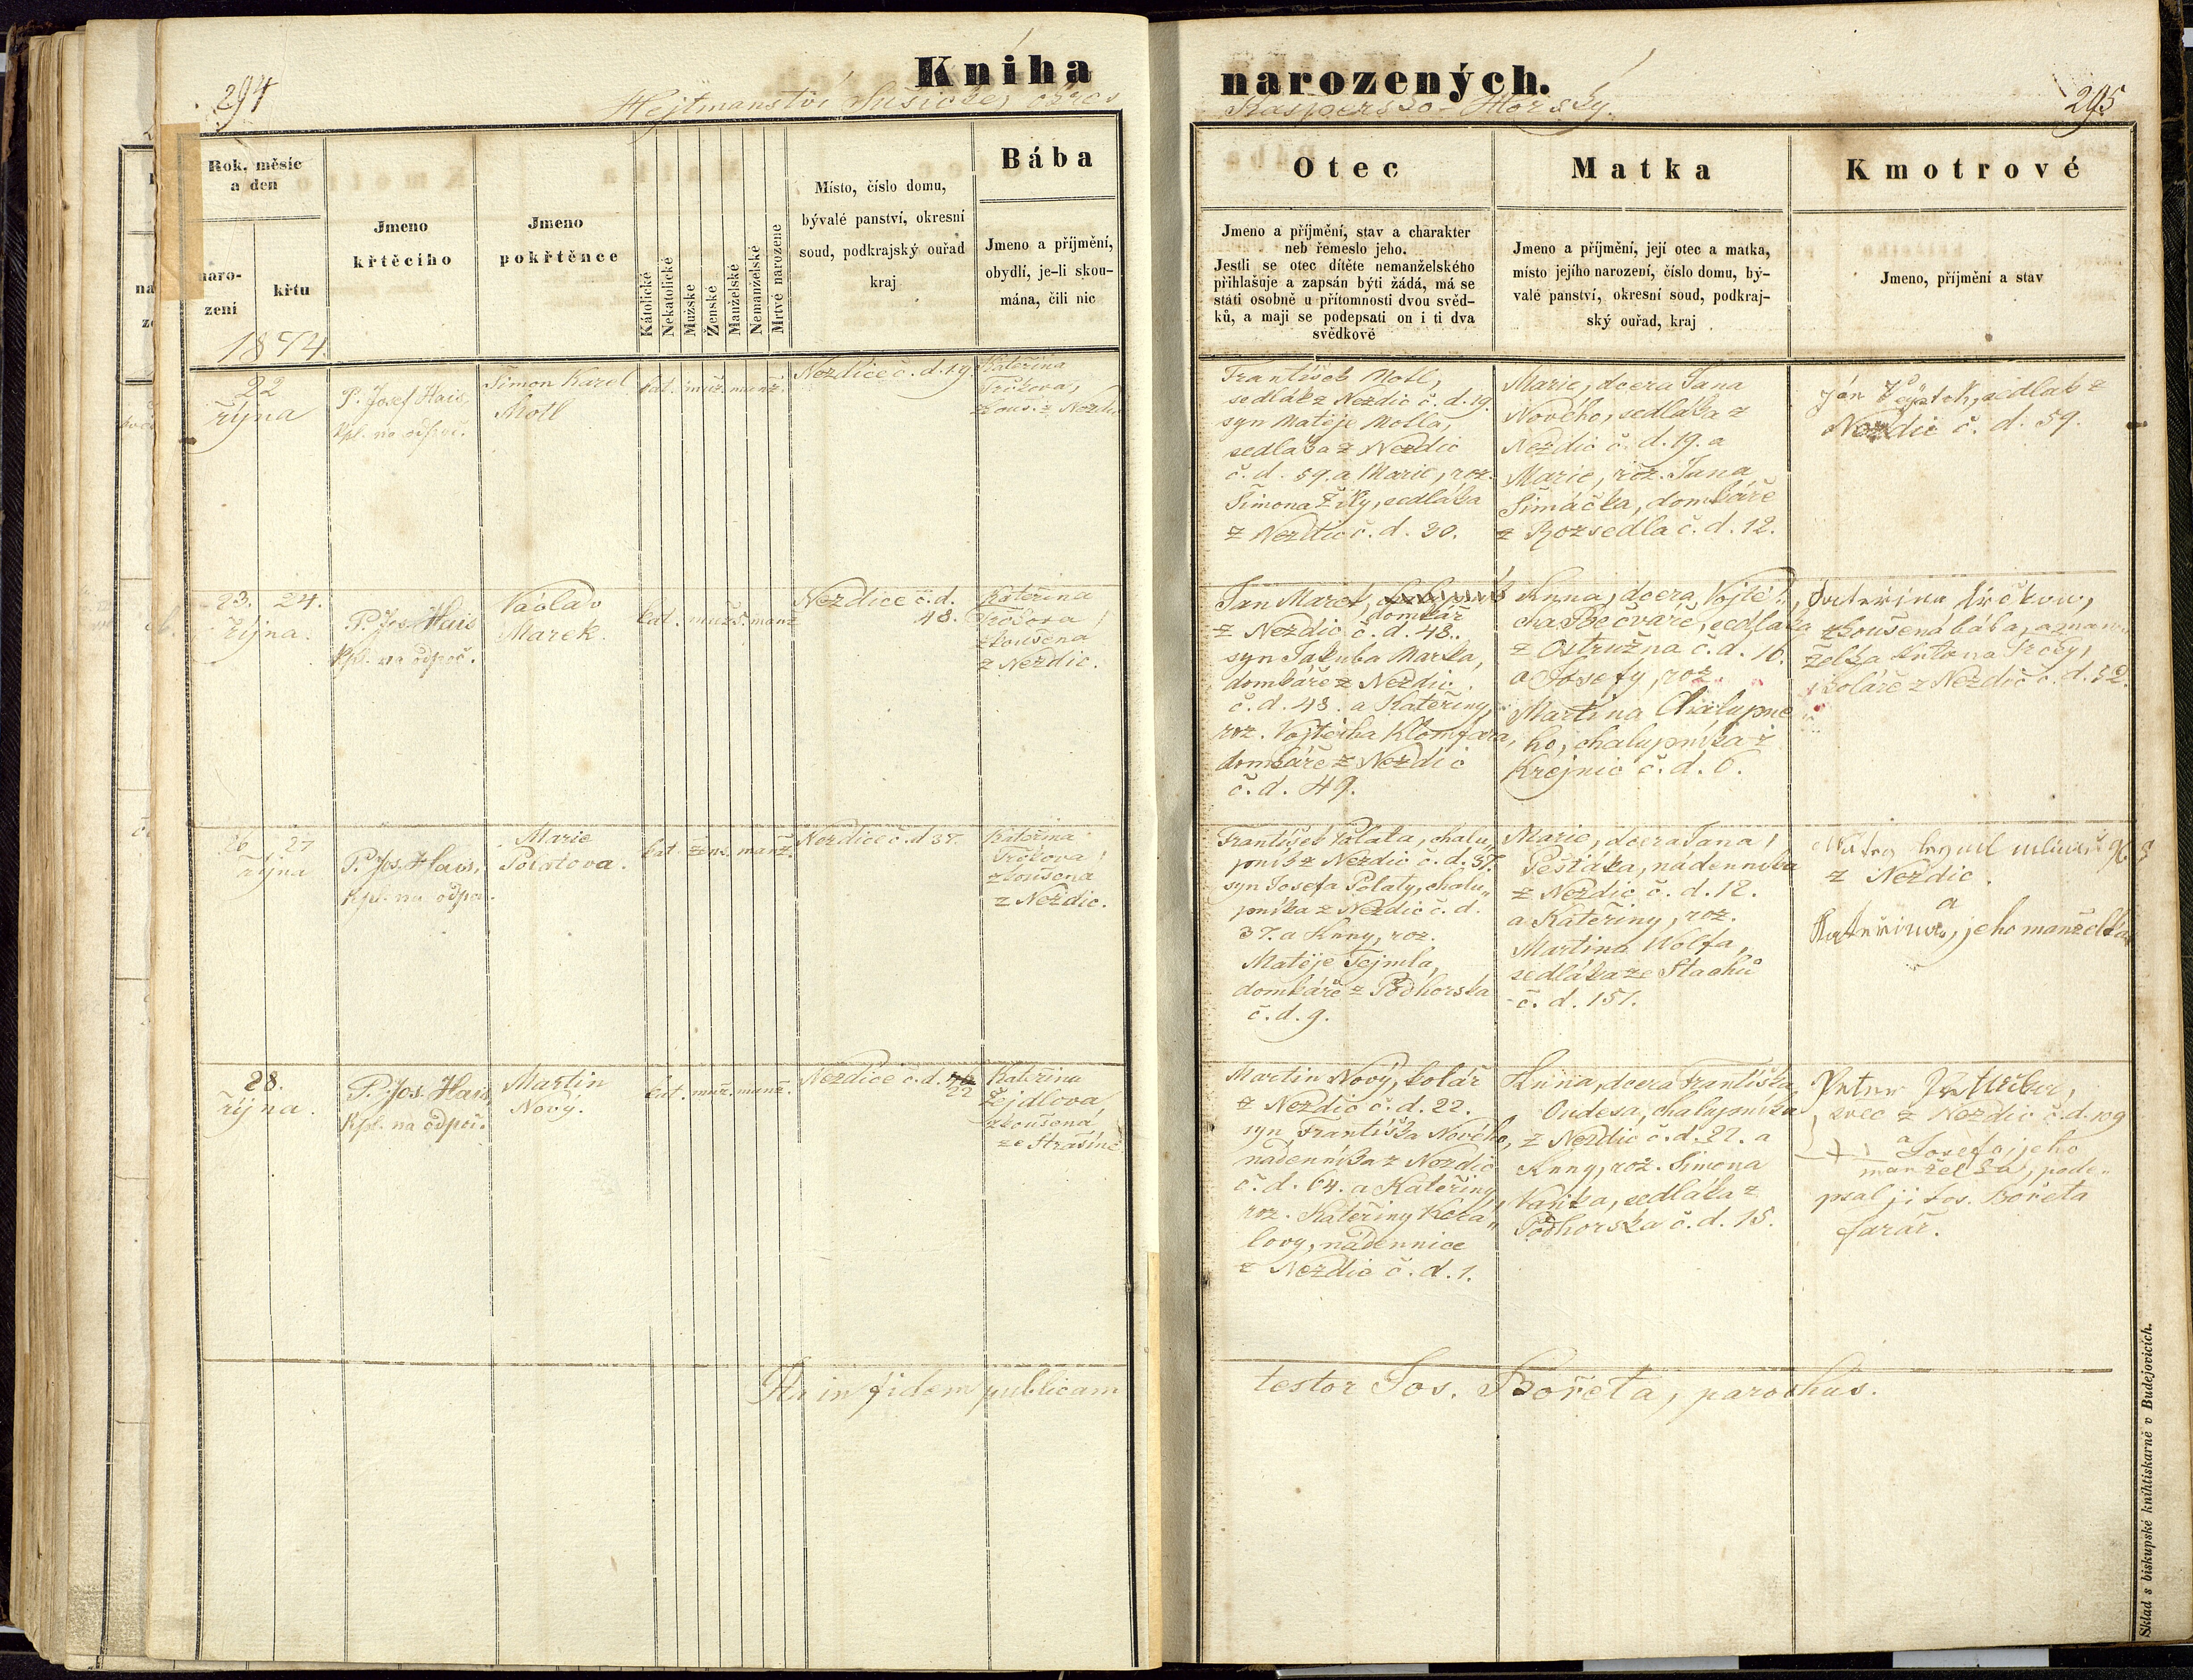 294
Kniha
narozených.
295
Hejtmanství Sušické, okres
Kaspersko-Horský.
Rok, měsíc
a den
naro-
zení
křtu
1874
Jmeno
křtěcího
Jmeno
pokřtěnce
Kátolické
Nekatolické
Mužské
Ženské
Manželské
Nemanželské
Mrtvě narozené
Místo, číslo domu,
bývalé panství, okresní
soud, podkrajský ouřad
kraj
Bába
Jmeno a příjmění,
obydlí, je-li skou-
mána, čili nic
Otec
Jmeno a příjmění, stav a charakter
neb řemeslo jeho.
Jestli se otec dítěte nemanželského
přihlašuje a zapsán býti žádá, má se
státi osobně u přítomnosti dvou svěd-
ků, a mají se podepsati on i ti dva
svědkově
Matka
Jmeno a příjmění, její otec a matka,
místo jejího narození, číslo domu, bý-
valé panství, okresní soud, podkraj-
ský ouřad, kraj
Kmotrové
Jmeno, přijmění a stav
22
října
P. Josef Hais,
Kpl. na odpoč.
Šimon Karel
Motl
kat. muž. manž.
Nezdice č. d. 19
Kateřina
Trčkova,
zkouš. z Nezd.
František Motl,
sedlák z Nezdic č. d. 19.
syn Matěje Motla,
sedláka z Nezdic
č. d. 59. a Marie, roz.
Šimona Žiky, sedláka
z Nezdic č. d. 30.
Marie, dcera Jana
Nového, sedláka z
Nezdic č. d. 19. a
Marie, roz. Jana
Šimáčka, domkáře
z Rozsedla č. d. 12.
Ján sedlák z
Nezdic č. d. 59.
23. 24.
října.
P. Jos. Hais
Kpl. na odpoč.
Václav
Marek.
kat. mužs. manž
Nezdice č. d.
48.
Kateřina
Trčkova,
zkoušena
z Nezdic.
Jan Marek,
domkář
z Nezdic č. d. 48.
syn Jakuba Marka,
domkáře z Nezdic
č. d. 48. a Kateřiny,
roz. Vojtěcha Klomfara,
domkáře z Nezdic
č. d. 49.
Anna, dcera Vojtě-
cha Bečváře, sedláka
z Ostružna č. d. 16.
a Josefy, roz.
Martina Chalupné
ho, chalupníka z
Krejnic č. d. 6.
Kateřina Trčkova,
zkoušená bába, a man-
želka Antona Trčky,
koláře z Nezdic č. d. 52.
26 27
října
P. Jos. Hais,
Kpl. na odpoč.
Marie
kat. žens. manž.
Nezdice č. d 37.
Kateřina
Trčkova,
zkoušena
z Nezdic.
František Palata, chalu„
pník z Nezdic č. d. 37.
syn Josefa Polaty, chalu„
pníka z Nezdic č. d.
37. a Anny, roz.
Matěje Tejmla,
domkáře z Podhorska
č. d. 9.
Marie, dcera Jana,
Pešťáka, nádenníka
z Nezdic č. d. 12.
a Kateřiny, roz.
Martina Wolfa,
sedláka ze Stachů
č. d. 151.
z Nezdic.
a
Kateřina, jeho manželka
28.
října.
P. Jos. Hais,
Kpl. na odpoč.
Martin
Nový.
kat. muž. manž.
Nezdice č. d.
22
Kateřina
Žejdlova
zkoušená,
ze Strašína
Martin Nový, kolář
z Nezdic č. d. 22.
syn Františka Nového,
nádenníka z Nezdic
č. d. 64. a Kateřiny,
roz. Kateřiny
lovy, nádennice
z Nezdic č. d. 1.
Anna, dcera Františka
Oudesa, chalupníka
z Nezdic č. d. 22. a
Anny, roz. Šimona
Vaňka, sedláka z
Podhorska č. d. 15.
Peter
švec z Nezdic č. d. 109
a Josefa, jeho
manželka, pode„
psal ji Jos. Bořeta
farář.
In fidem publicam
testor Jos. Bořeta, parochus.
Sklad s biskupské knihtiskarně v Budejovicích.